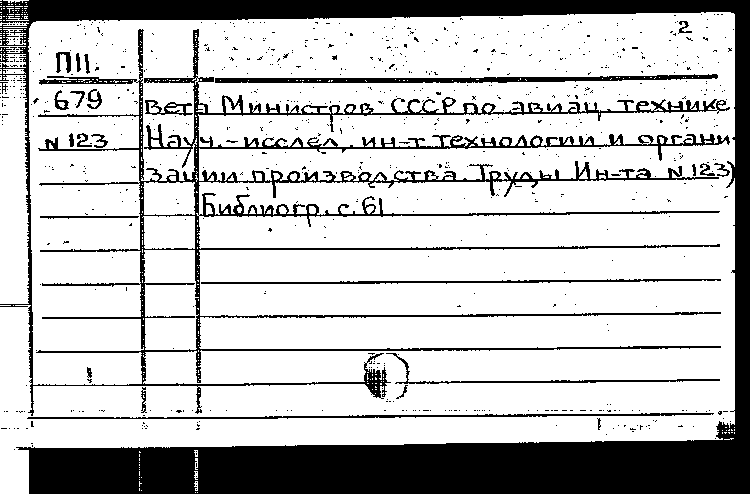 2
П11.
679 вета Министров СССР по авиац. технике.
N 123 Науч.-исслед. ин-т технологии и органи-
зации производства. Труды Ин-та N 123)
Библиогр. с. 61.